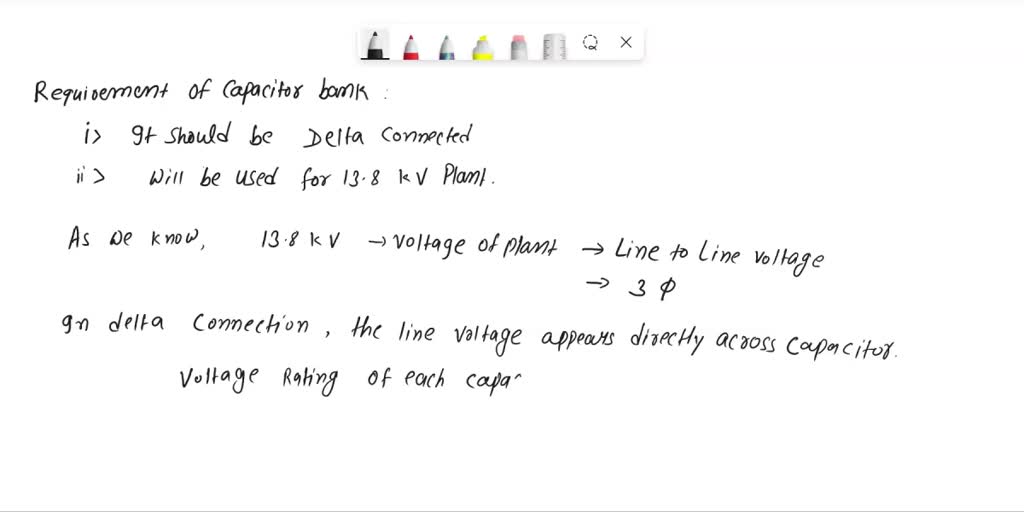 Requirement of Capacitor bank :
i> It should be Delta Connected
ii> Will be used for 13.8 kV Plant.
As we know, 13.8 kV → Voltage of plant → Line to Line voltage
→ 3 ϕ
In delta Connection, the line voltage appears directly across capacitor.
Voltage Rating of each capa